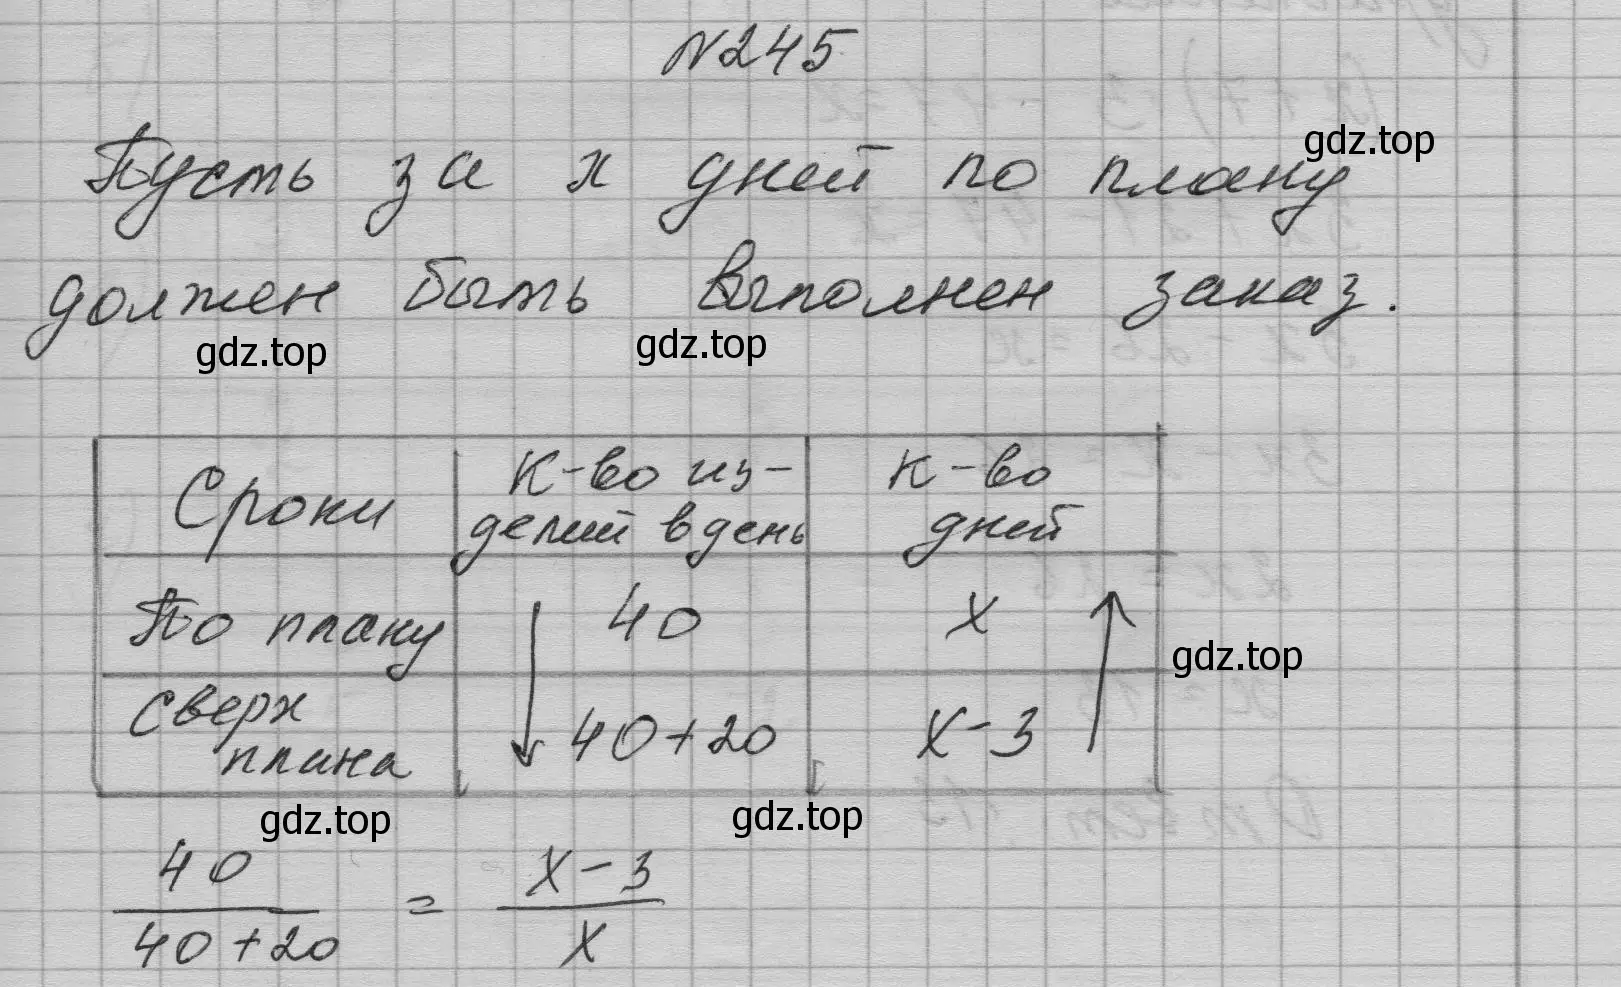 №245
gdz.top
Пусть за х дней по плану
должен быть выполнен заказ.
gdz.top
gdz.top
Сроки
К-во из-
делий в день
К-во
дней
По плану
40
х
gdz.top
Сверх
плана
40+20
х-3
gdz.top
gdz.top
40
х-3
=
40+20
х